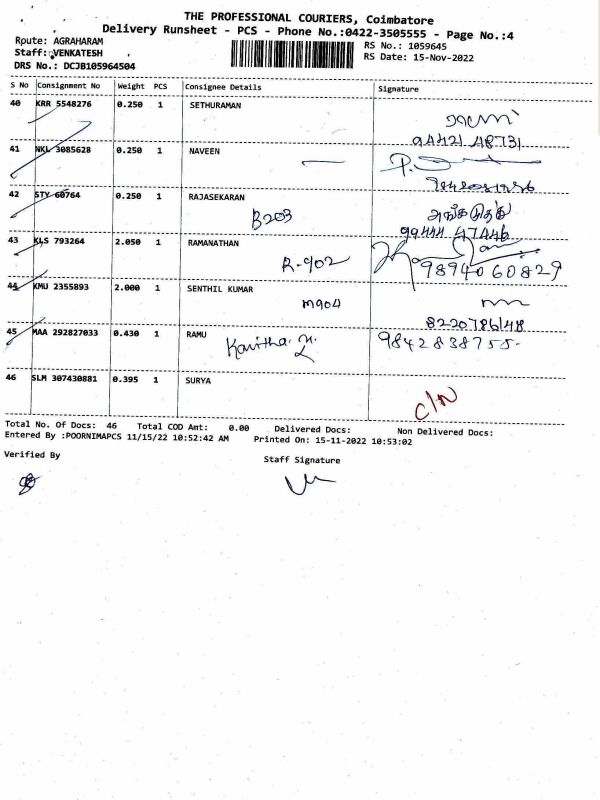 THE PROFESSIONAL COURIERS, Coimbatore
Delivery Runsheet - PCS - Phone No.:0422-3505555 - Page No.:4
Route: AGRAHARAM
RS No.: 1059645
Staff: VENKATESH
RS Date: 15-Nov-2022
DRS No.: DCJB105964504
S No Consignment No Weight PCS Consignee Details Signature
40 KRR 5548276 0.250 1 SETHURAMAN
94421 48731
41 NKL 3085628 0.250 1 NAVEEN
42 STY 60764 0.250 1 RAJASEKARAN
B203
99444 47446
43 KLS 793264 2.050 1 RAMANATHAN
R-902 9894060829
44 KMU 2355893 2.000 1 SENTHIL KUMAR
M904
8220786148
45 MAA 292827033 0.430 1 RAMU 9842838755-
Kavitha
46 SLM 307430881 0.395 1 SURYA
C/N
Total No. Of Docs: 46 Total COD Amt: 0.00 Delivered Docs: Non Delivered Docs:
Entered By :POORNIMAPCS 11/15/22 10:52:42 AM Printed On: 15-11-2022 10:53:02
Verified By
Staff Signature